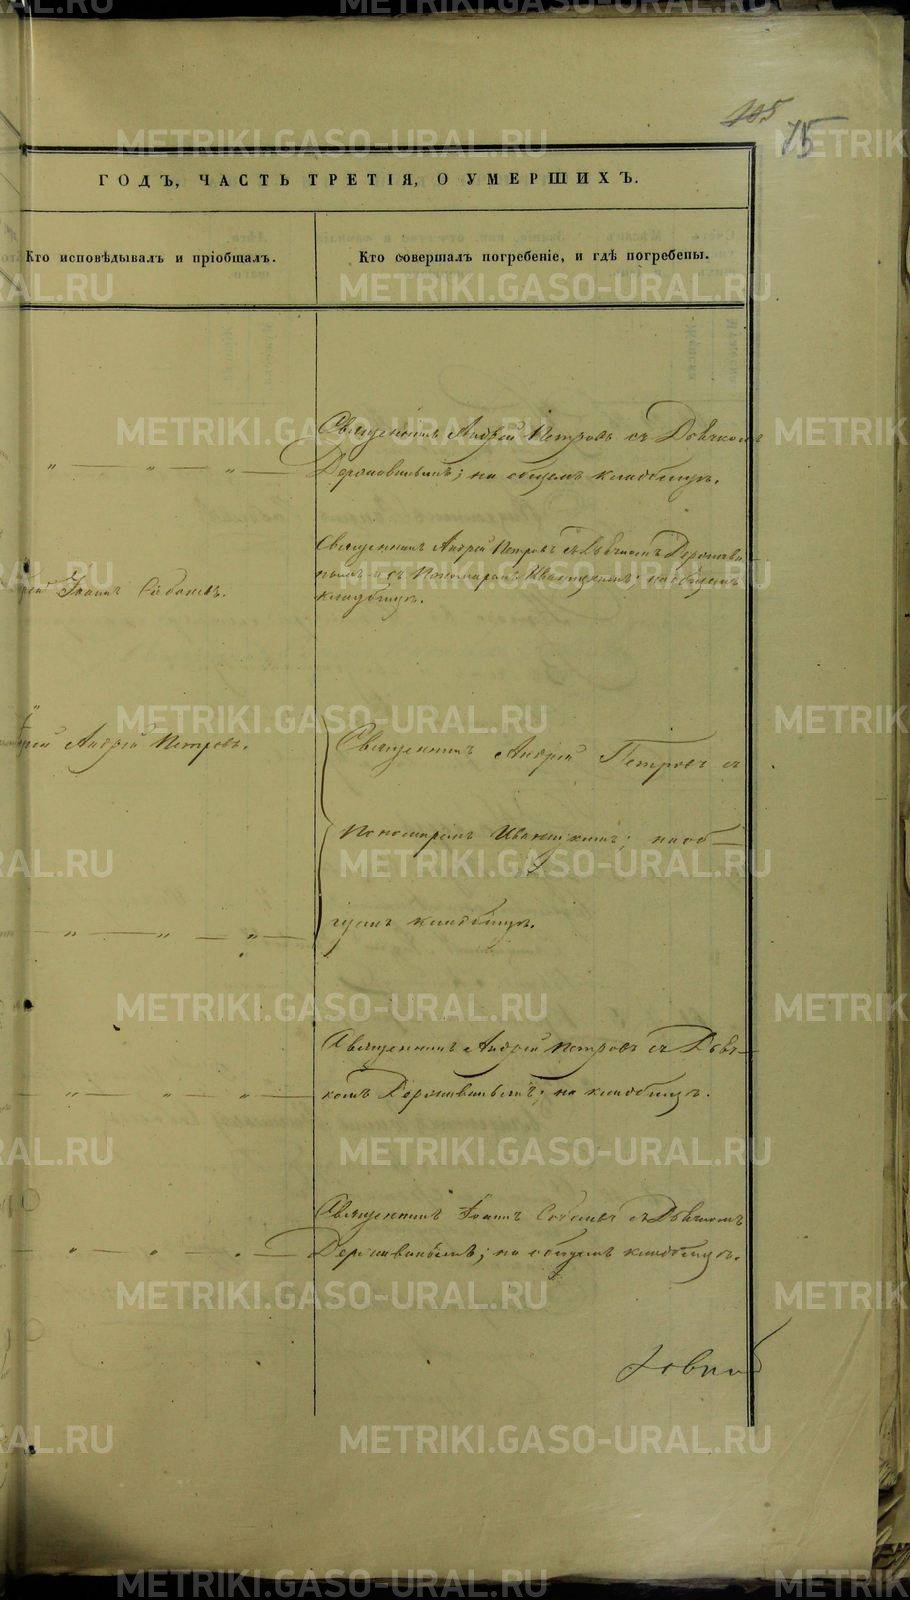 METRIKI.GASO-URAL.RU
105
75
ГОДЪ, ЧАСТЬ ТРЕТІЯ, О УМЕРШИХЪ.
Кто исповѣдывалъ и пріобщалъ.
Кто совершалъ погребеніе, и гдѣ погребены.
Священникъ Андрей Петровъ съ Дьячкомъ
Державинымъ; на общемъ кладбищѣ.
Священникъ Андрей Петровъ съ Дьячкомъ Держави-
нымъ и съ Пономаремъ; на общемъ
кладбищѣ.
рей Іоаннъ
рей Андрей Петровъ.
Священникъ Андрей Петровъ съ
Пономаремъ; на об-
щемъ кладбищѣ.
Священникъ Андрей Петровъ съ Дьяч-
комъ Державинымъ; на кладбищѣ.
Священникъ Іоаннъ съ Дьячкомъ
Державинымъ; на общемъ кладбищѣ.